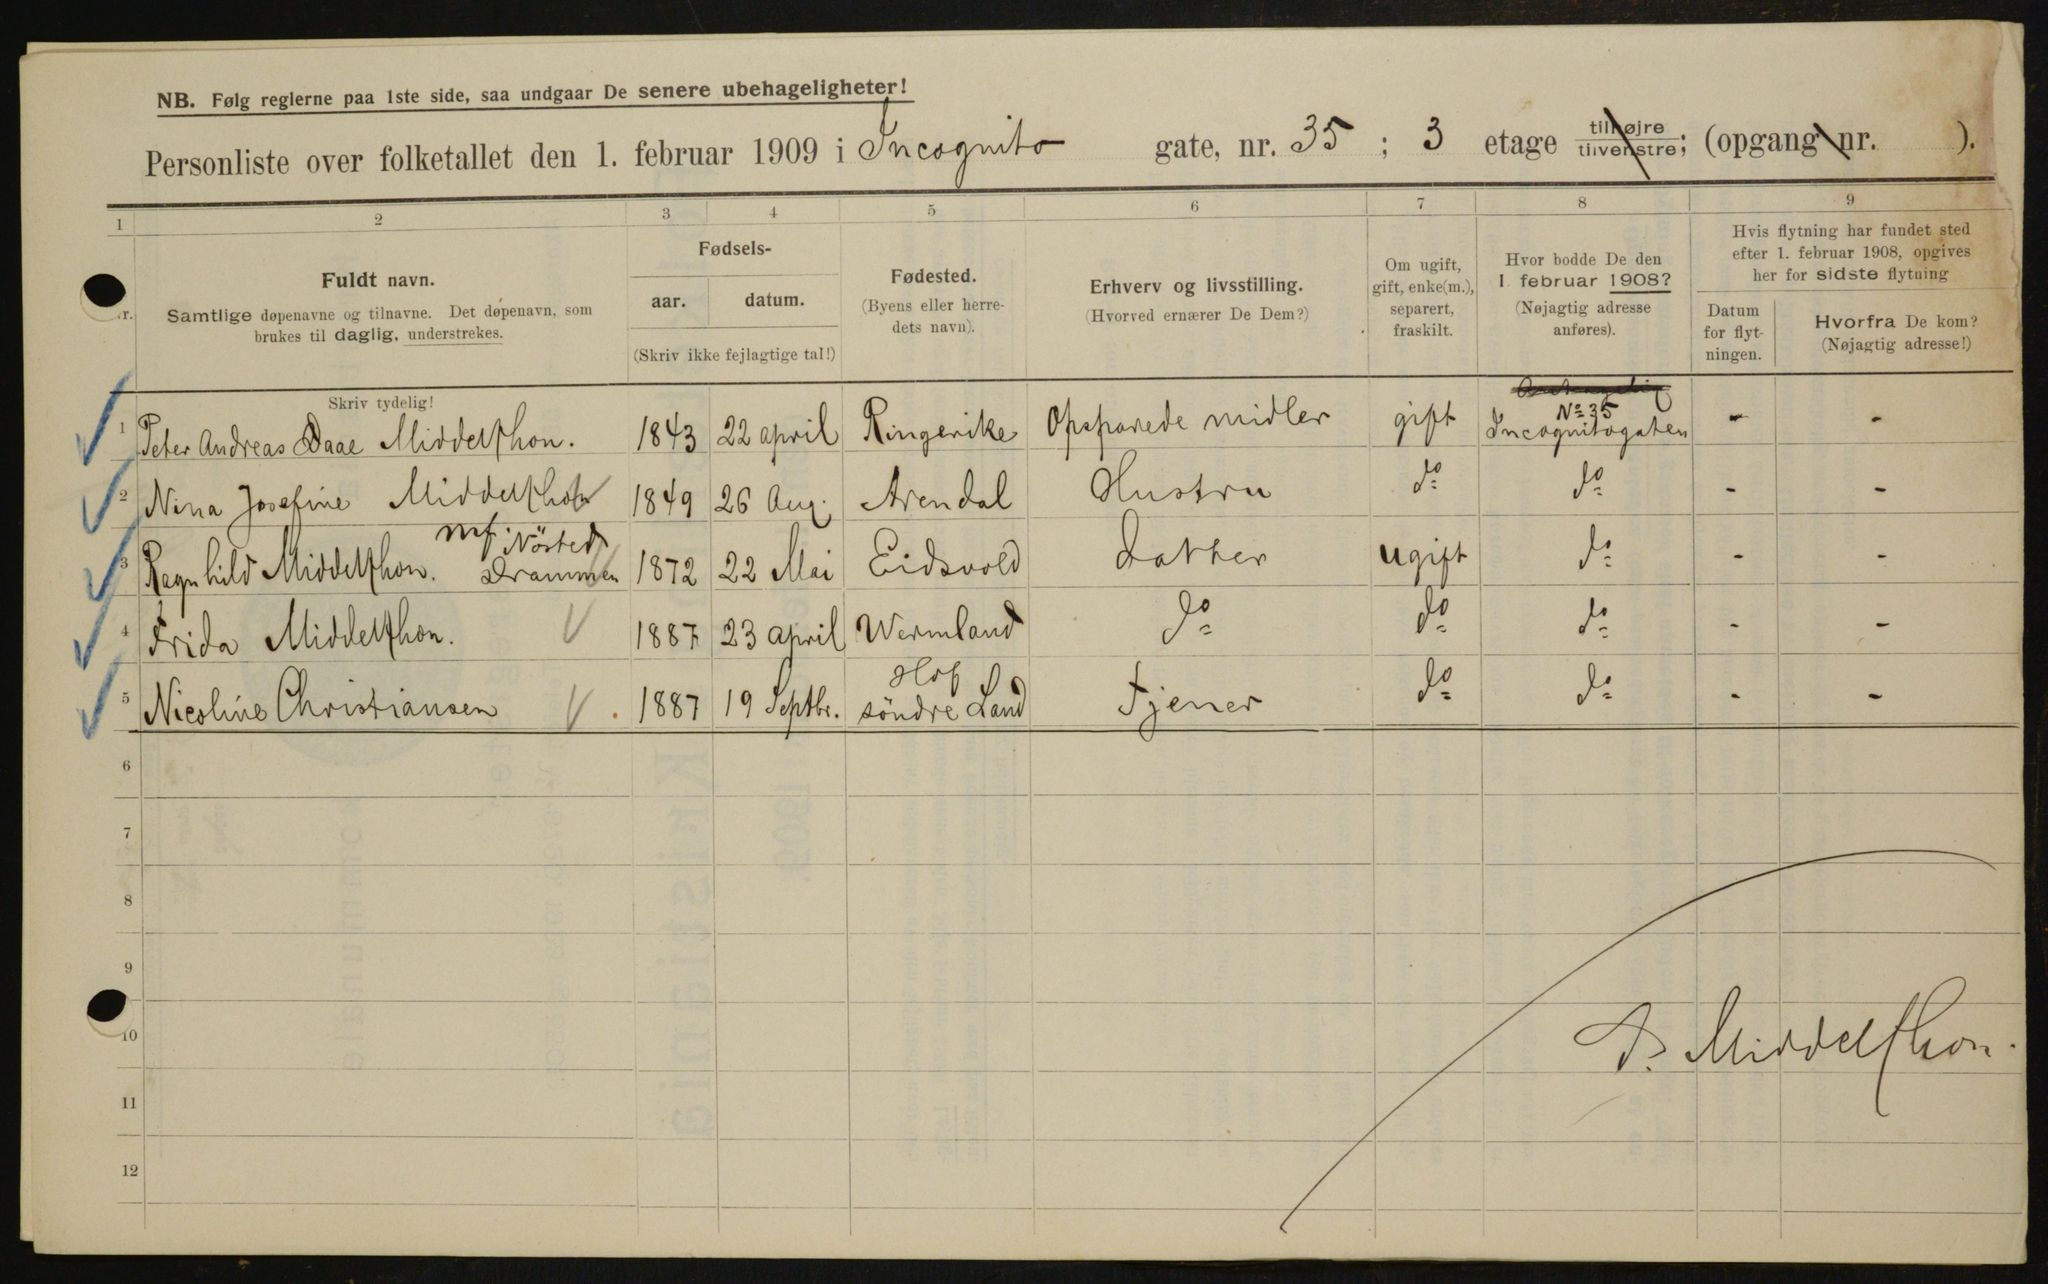 NB. Følg reglerne paa 1ste side, saa undgaar De senere ubehageligheter!
Personliste over folketallet den 1. februar 1909 i Incognito gate, nr. 35 ; 3 etage tilhøjre tilvenstre; (opgang nr. ).
1 2 3 4 5 6 7 8 9
Nr. Fuldt navn. Samtlige døpenavne og tilnavne. Det døpenavn, som brukes til daglig, understrekes.
Fødsels- aar. datum. (Skriv ikke fejlagtige tal!)
Fødested. (Byens eller herredets navn).
Erhverv og livsstilling. (Hvorved ernærer De Dem?)
Om ugift, gift, enke(m.), separert, fraskilt.
Hvor bodde De den 1. februar 1908? (Nøjagtig adresse anføres).
Hvis flytning har fundet sted efter 1. februar 1908, opgives her for sidste flytning
Datum for flytningen.
Hvorfra De kom? (Nøjagtig adresse!)
Skriv tydelig!
1 Peter Andreas Daae Middelthon. 1843 22 april Ringerike Opsparede midler gift No 35 Incognitogaten - -
2 Nina Josefine Middelthon 1849 26 Aug. Arendal Hustru do do - -
3 Ragnhild Middelthon. mf. Nösted Drammen 1872 22 Mai Eidsvold Datter ugift do - -
4 Frida Middelthon. 1887 23 april Wermland do do do - -
5 Nicoline Christiansen 1887 19 Septbr. Hof söndre Land Tjener do do - -
6
7
8
9
10
11
12
A. Middelthon.